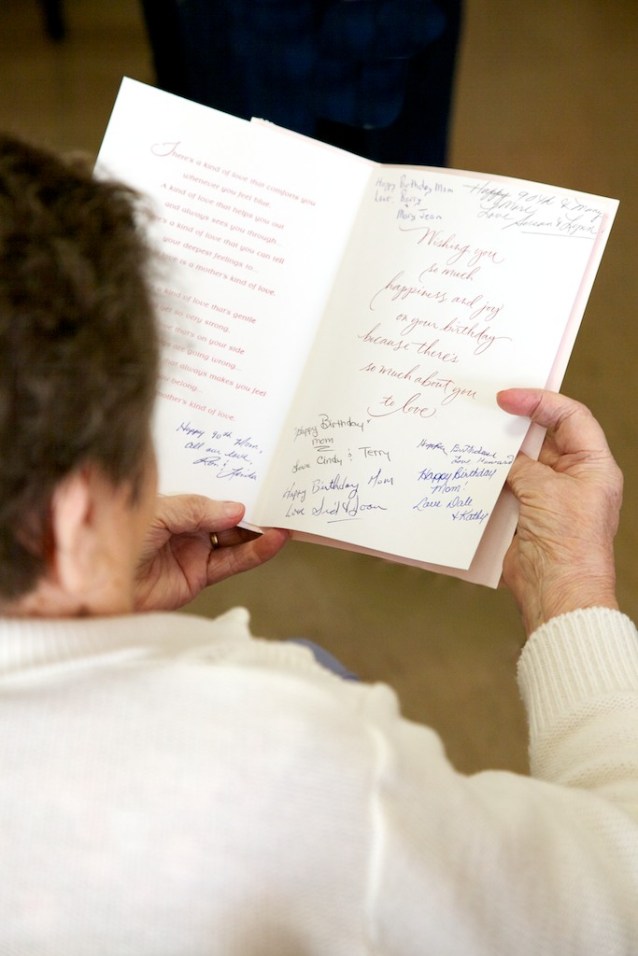 There's a kind of love that comforts you
whenever you feel blue.
A kind of love that helps you out
and always sees you through...
a kind of love that you can tell
your deepest feelings to...
is a mother's kind of love.
of love that's gentle
so very strong.
on your side
are going wrong...
that always makes you feel
other's kind of love.
Happy 90th Mom,
all our love
Happy Birthday Mom
Love
Mary Jean
Happy 90th
Love
Wishing you
so much
happiness and joy
on your birthday
because there's
so much about you
to love
Happy Birthday
mom
Love Cindy & Terry
Happy Birthday Mom
Love Sid & Joan
Happy Birthday
Love
Happy Birthday
Mom!
Love Dale
& Kathy